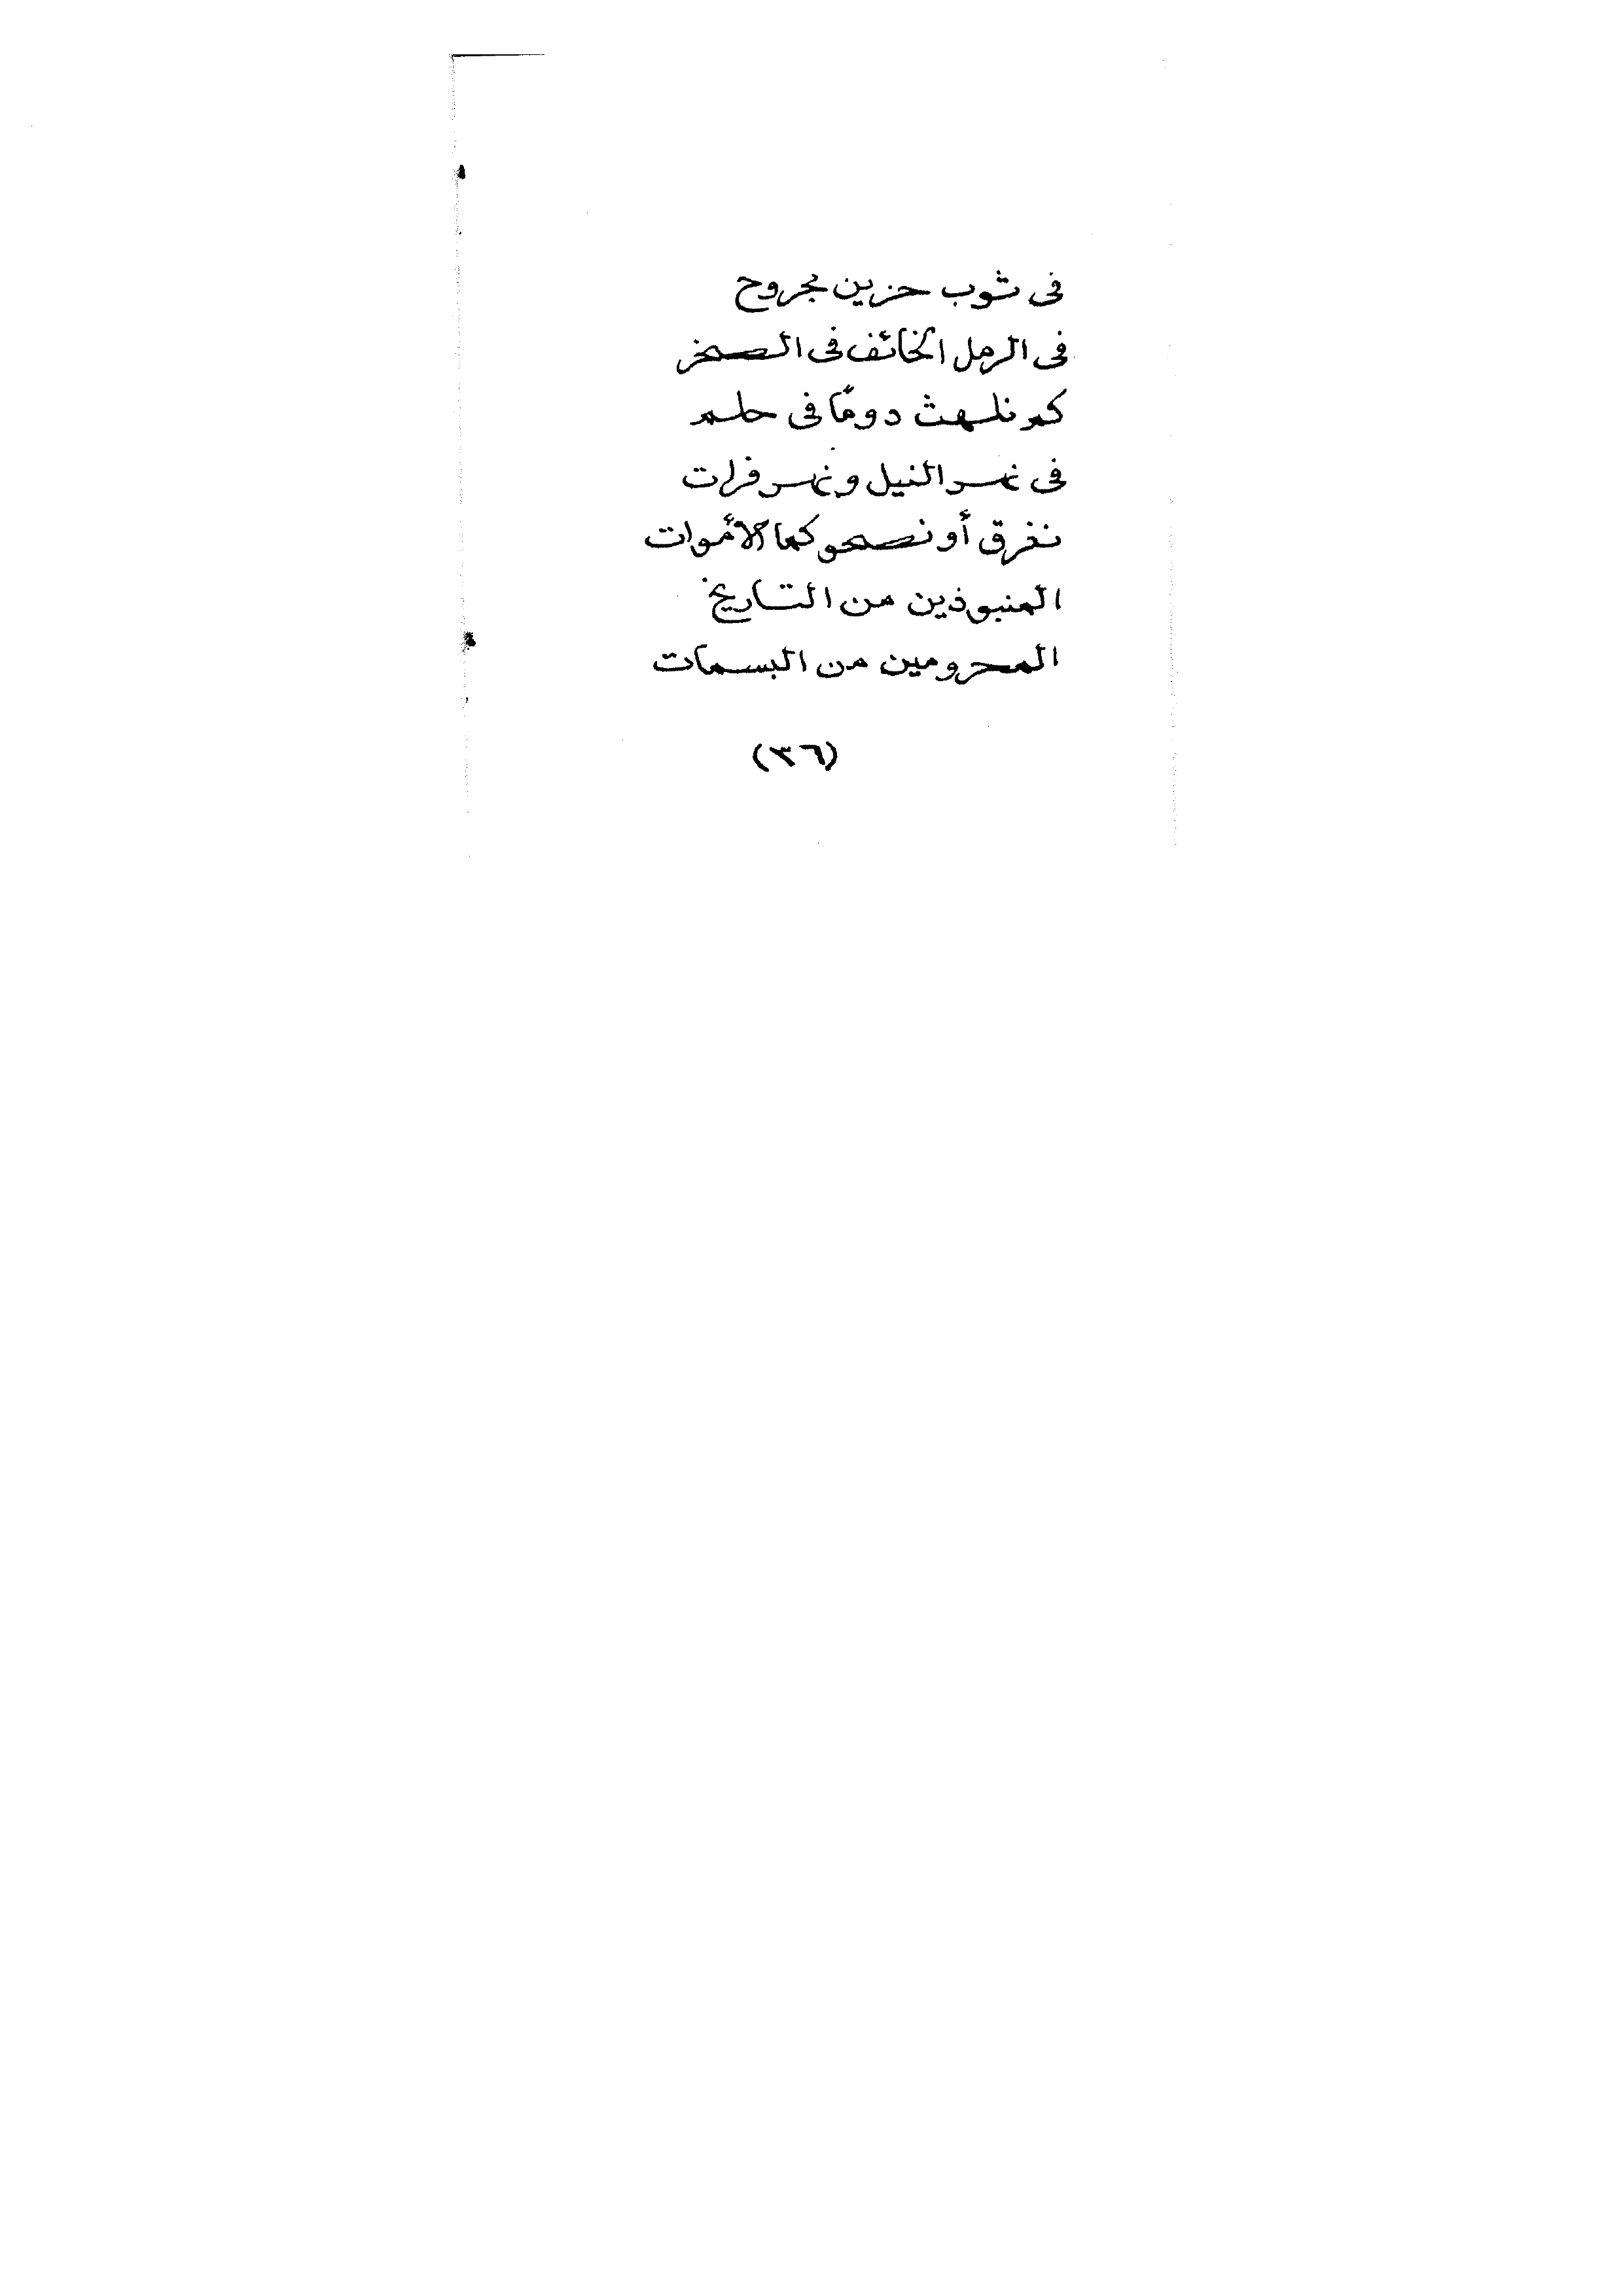 فى ثوب حزين مجروح
فى الرمل الخائف فى الصخر
كم نلهث دومًا فى حلم
فى نهر النيل ونهر فرات
نغرق أو نصحو كما الأموات
المنبوذين من التاريخ
المحرومين من البسمات
(٣٦)